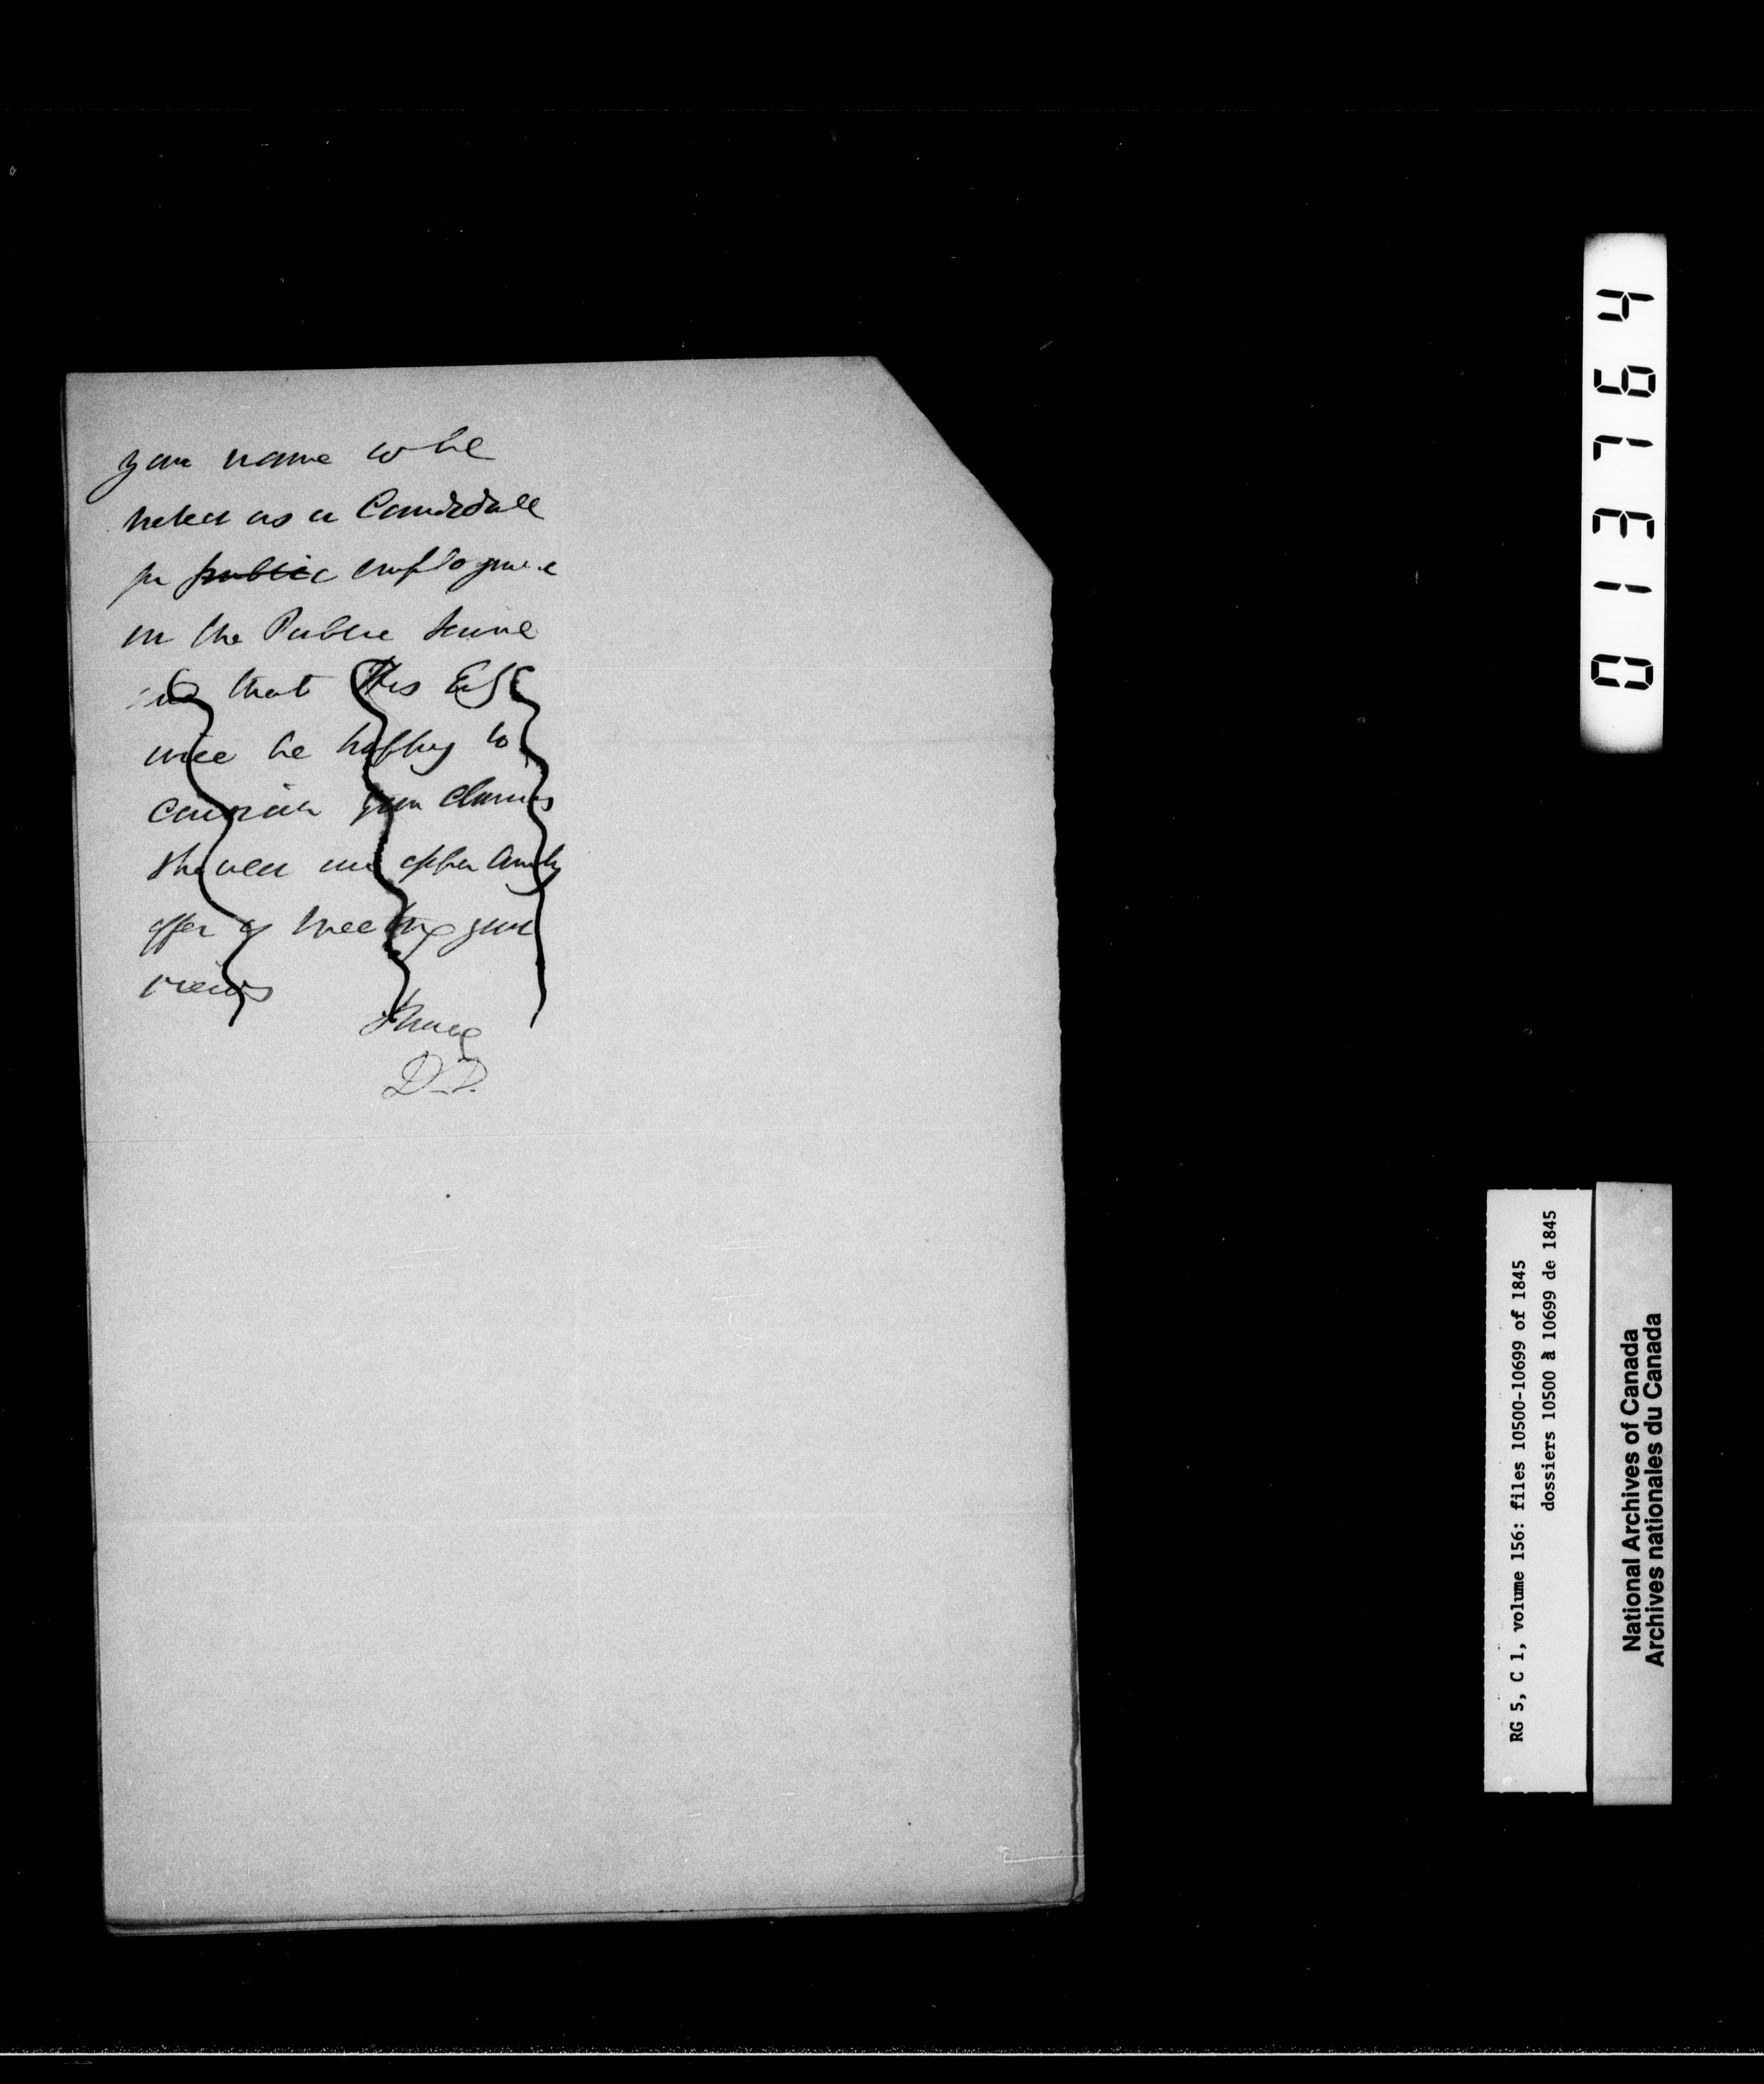 your name to be
noted as a Candidate
for public employment
in the Public Service
and that His Exc
will be happy to
consider your claims
should an opportunity
offer of meeting your
views
I have
D.D.
013764
RG 5, C 1, volume 156: files 10500-10699 of 1845
dossiers 10500 à 10699 de 1845
National Archives of Canada
Archives nationales du Canada